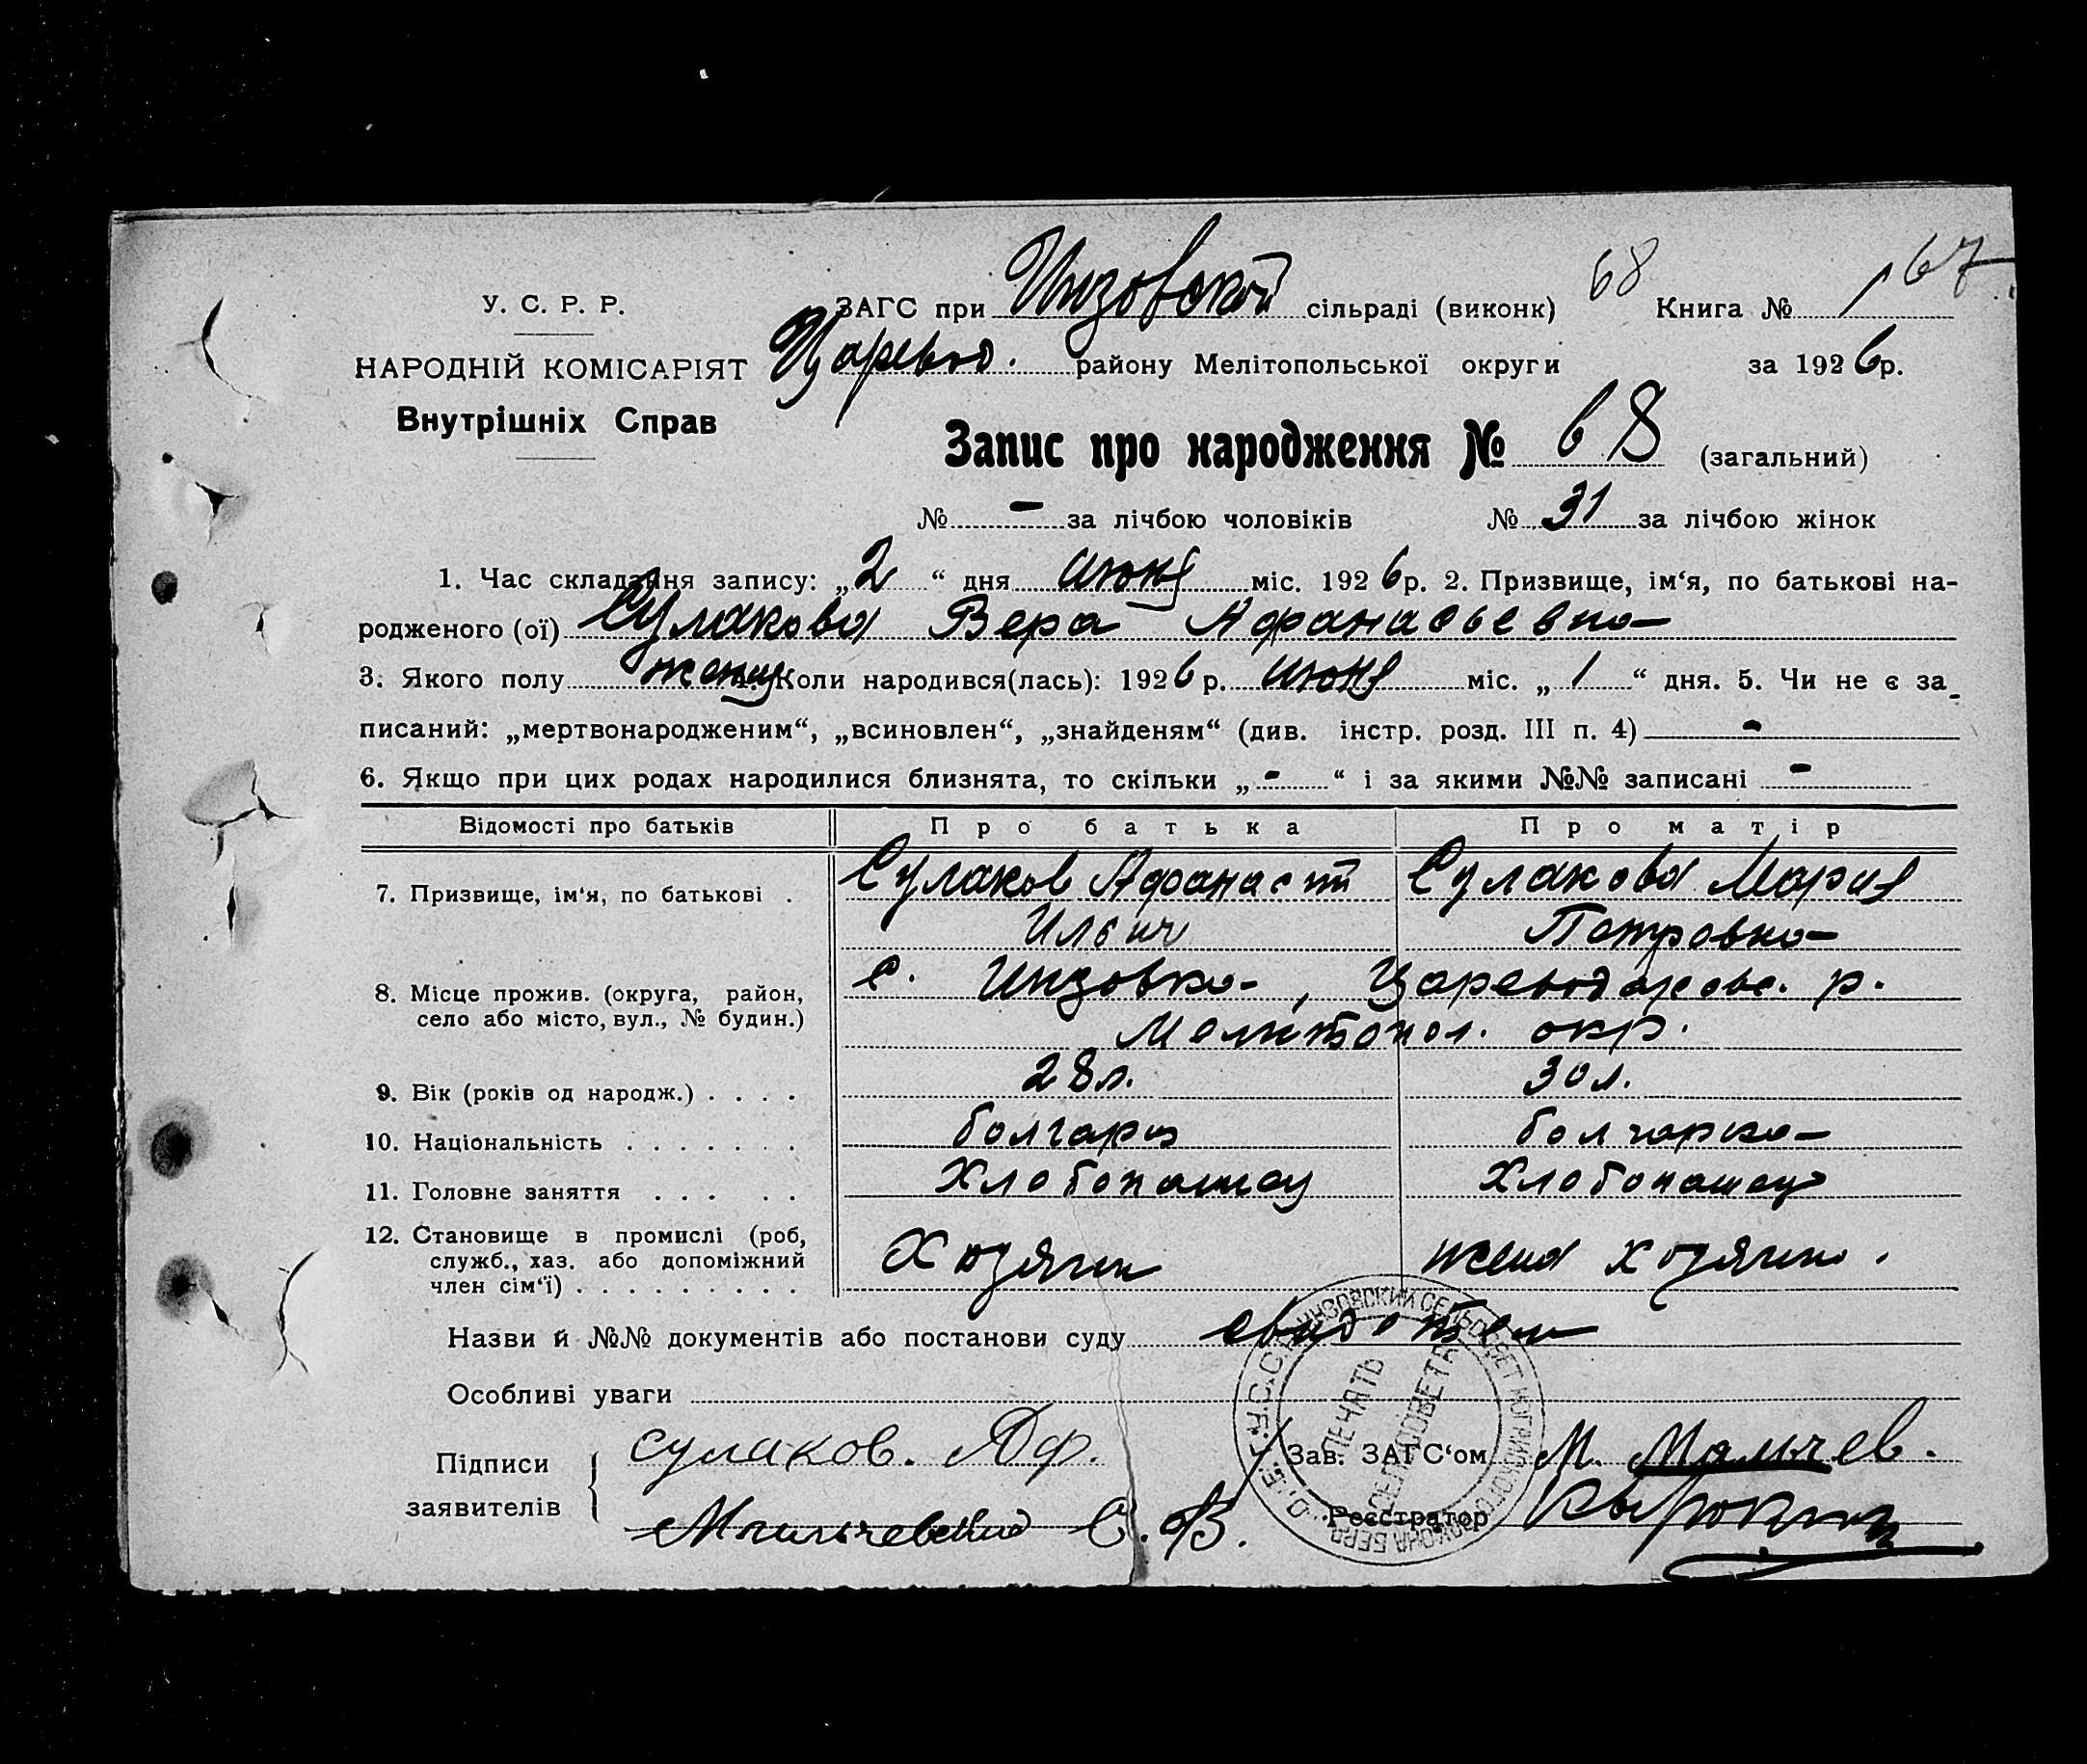 67
68
У. С. Р. Р.
ЗАГС при Инзовской сільраді (виконк) Книга № 1
НАРОДНІЙ КОМІСАРІЯТ
Царевод. району Мелітопольської округи за 1926р.
Внутрішніх Справ
Запис про народження № 68 (загальний)
№ - за лічбою чоловіків № 31 за лічбою жінок
1. Час складання запису: „2“ дня июня міс. 1926р. 2. Призвище, ім‘я, по батькові на-
родженого (ої) Сулакова Вера Афанасьевна
3. Якого полу женск Коли народився(лась): 1926р. июня міс. „1“ дня. 5. Чи не є за-
писаний: „мертвонародженим“, „всиновлен“, „знайденям“ (див. інстр. розд. III п. 4) -
6. Якщо при цих родах народилися близнята, то скільки „-“ і за якими №№ записані -
Відомості про батьків Про батька Про матір
7. Призвище, ім‘я, по батькові . Сулаков Афанасий Сулакова Мария
Ильич Петровна
8. Місце прожив. (округа, район, с. Инзовка, Цареводаровс. р.
село або місто, вул., № будин.) Мелитопол. окр.
9. Вік (років од народж.) . . . . 28л. 30л.
10. Національність . . . . . . . болгарин болгарка
11. Головне заняття . . . . . Хлебопашец Хлебопашец
12. Становище в промислі (роб, Хозяин жена хозяина.
служб., хаз. або допоміжний
член сім‘ї) . . . . . . . . .
Назви й №№ документів або постанови суду
Особливі уваги
Підписи Сулаков. Аф. Зав. ЗАГС‘ом М. Мальчев.
заявителів С. В. Реєстратор
ПЕЧАТЬ
СЕЛЬСОВЕТА